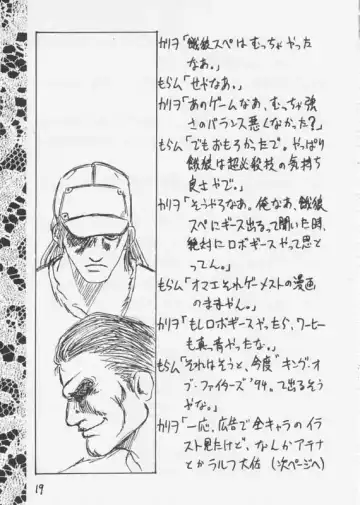 カリヲ「餓狼スペはむっちゃやった
なあ。」
もらム「せやなあ。」
カリヲ「あのゲームなあ、むっちゃ強
さのバランス悪くなかった?」
もらム「でもおもろかったで。やっぱり
餓狼は超必殺技の気持ち
良さやで。」
カリヲ「そうやろなあ。俺なあ、餓狼
スペにギース出るって聞いた時、
絶対にロボギースやって思と
ってん。」
もらム「オマエそれゲーメストの漫画
のままやん。」
カリヲ「もしロボギースやったら、ワーヒー
も真っ青やったな。」
もらム「それはそうと、今度"キング・オ
ブ・ファイターズ'94"って出るそう
やな。」
カリヲ「一応、広告で全キャラのイラ
スト見たけど、なんかアテナ
とかラルフ大佐(次ページへ)
19